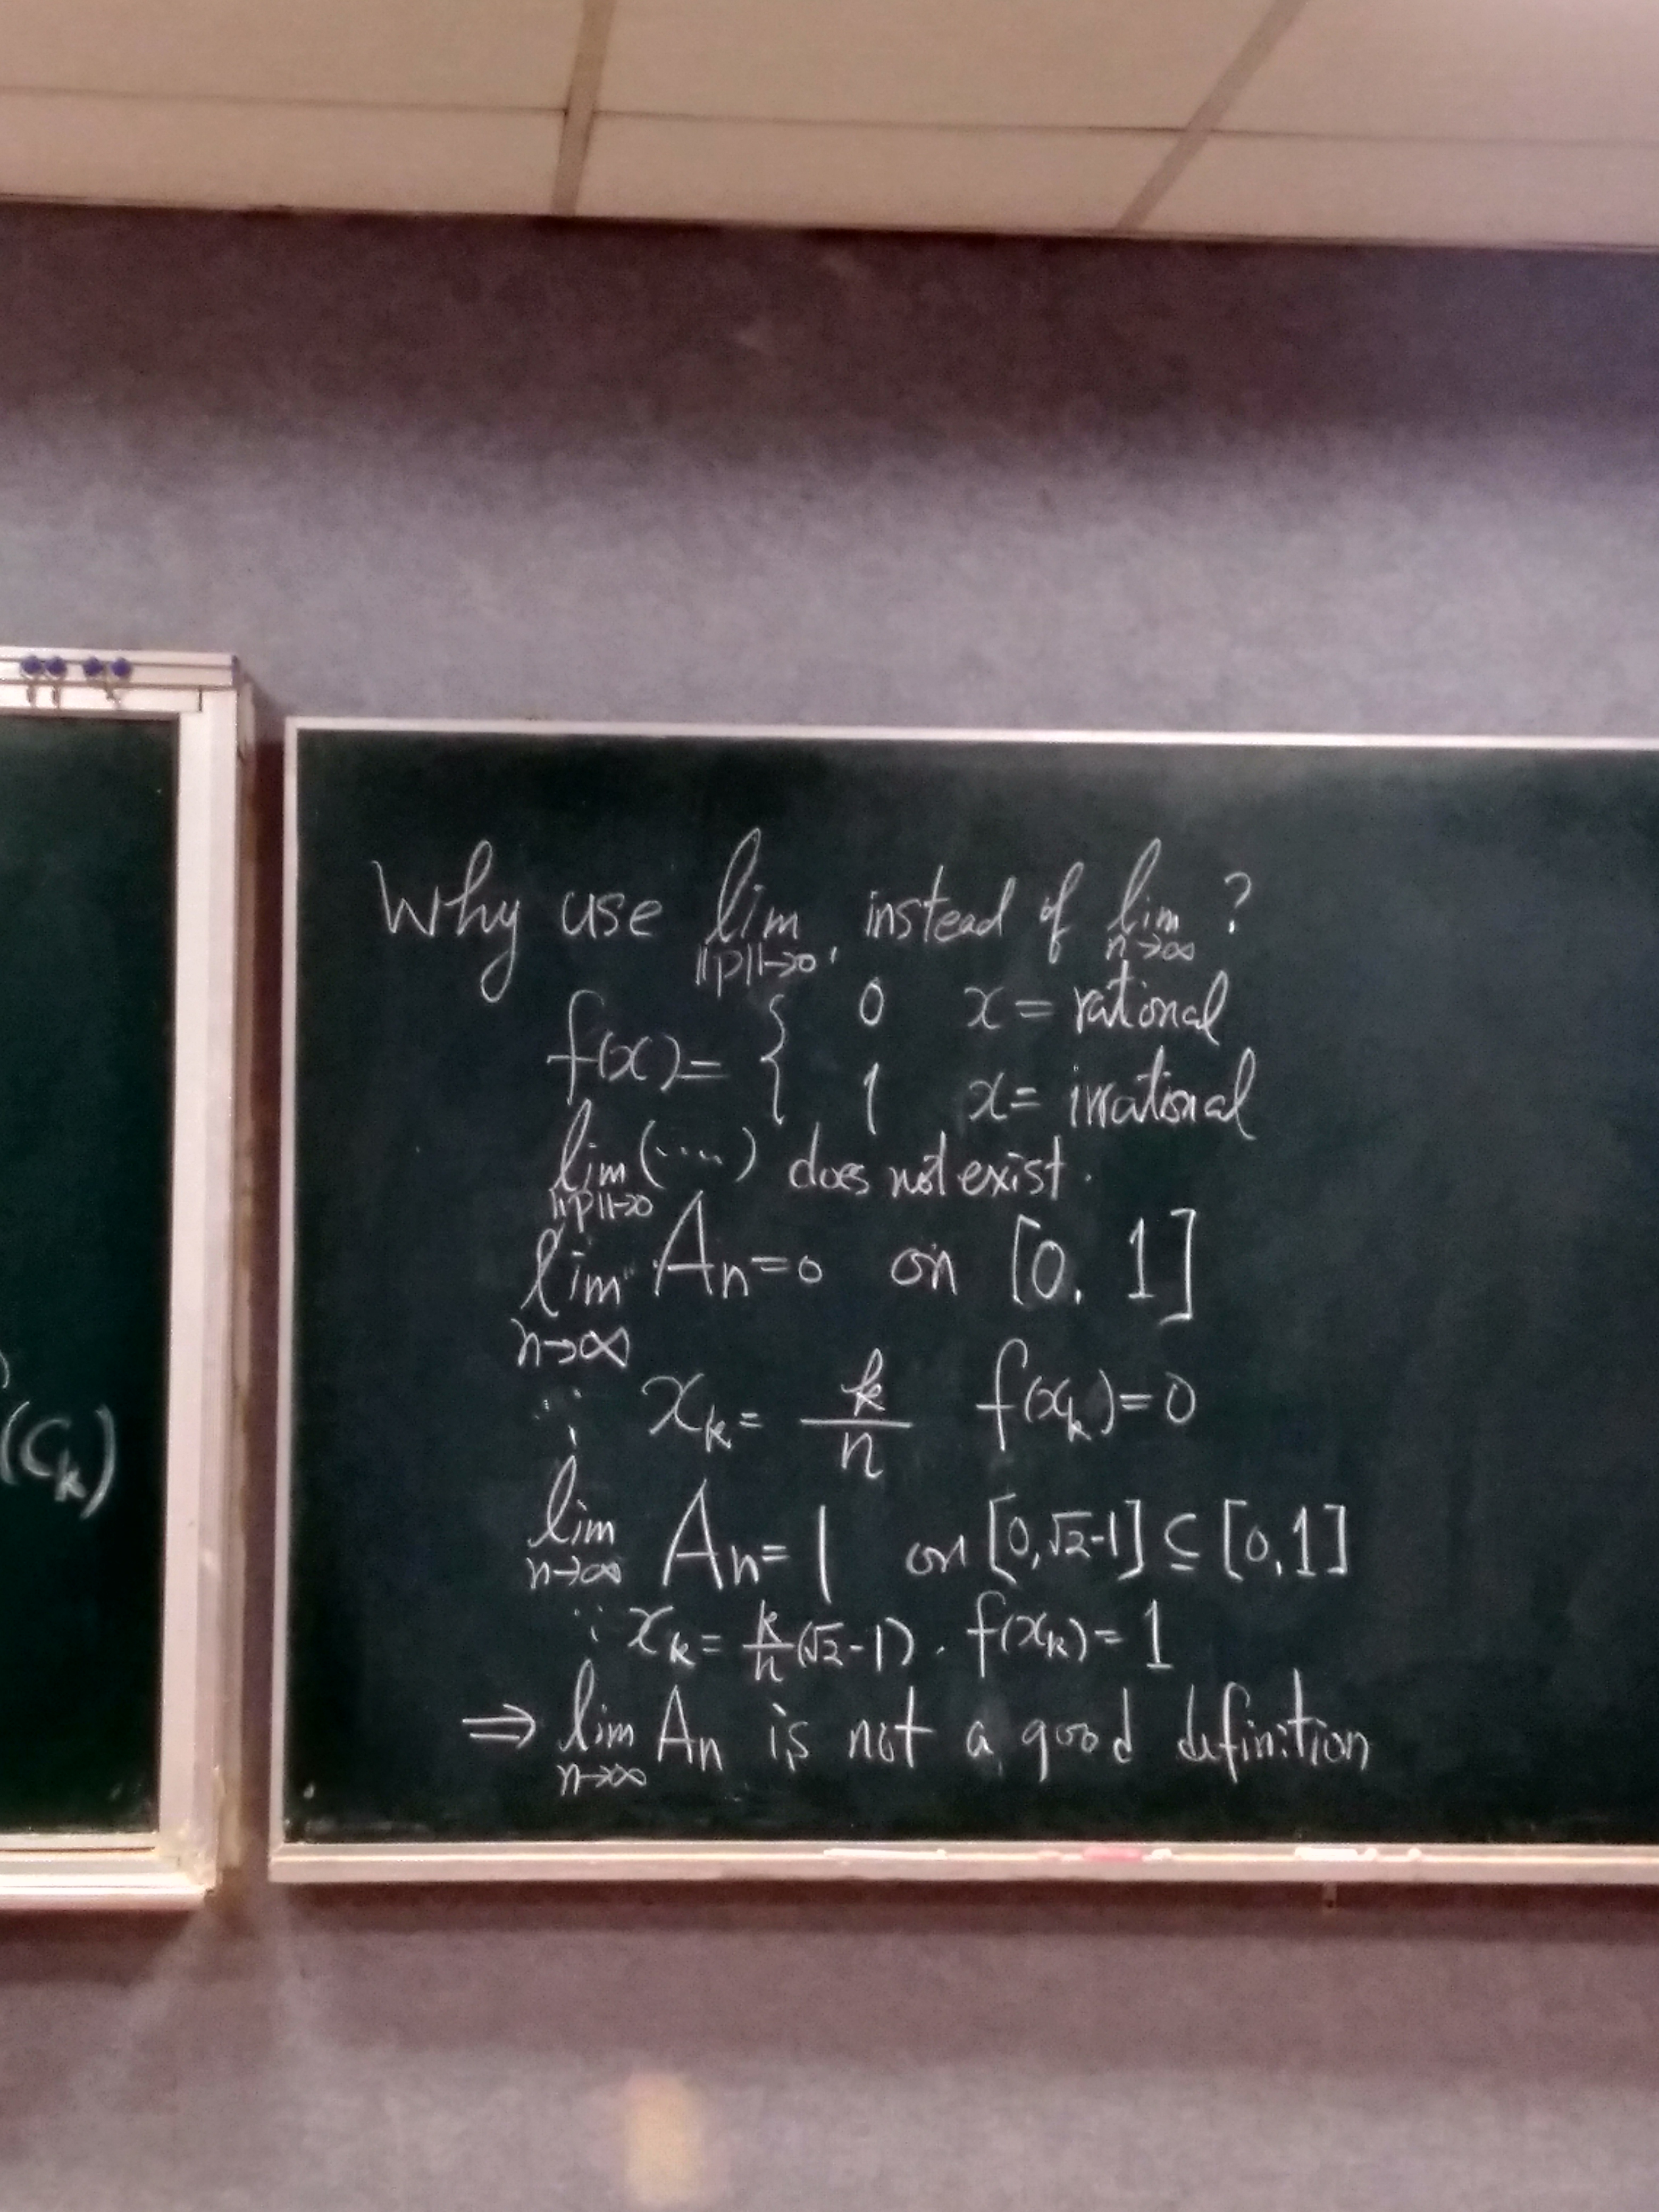 (Ck)
Why use lim ||p||→0, instead of lim n→∞ ?
f(x) = { 0 x = rational
1 x = irrational
lim ||p||→0 (....) does not exist.
lim n→∞ An = 0 on [0, 1]
∵ xk = k/n f(xk) = 0
lim n→∞ An = 1 on [0, √2-1] ⊆ [0, 1]
∵ xk = k/n (√2-1). f(xk) = 1
⇒ lim n→∞ An is not a good definition